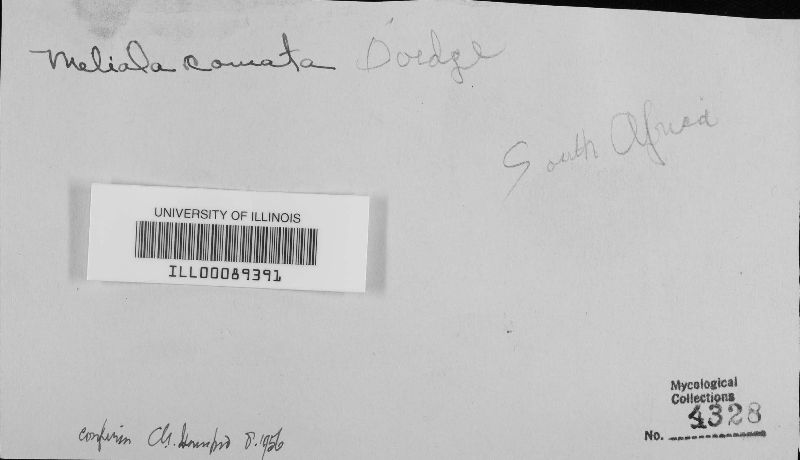 Meliola comata Doidge
South Africa
UNIVERSITY OF ILLINOIS
ILL00089391
Mycological
Collections
No. 4328
8.1956